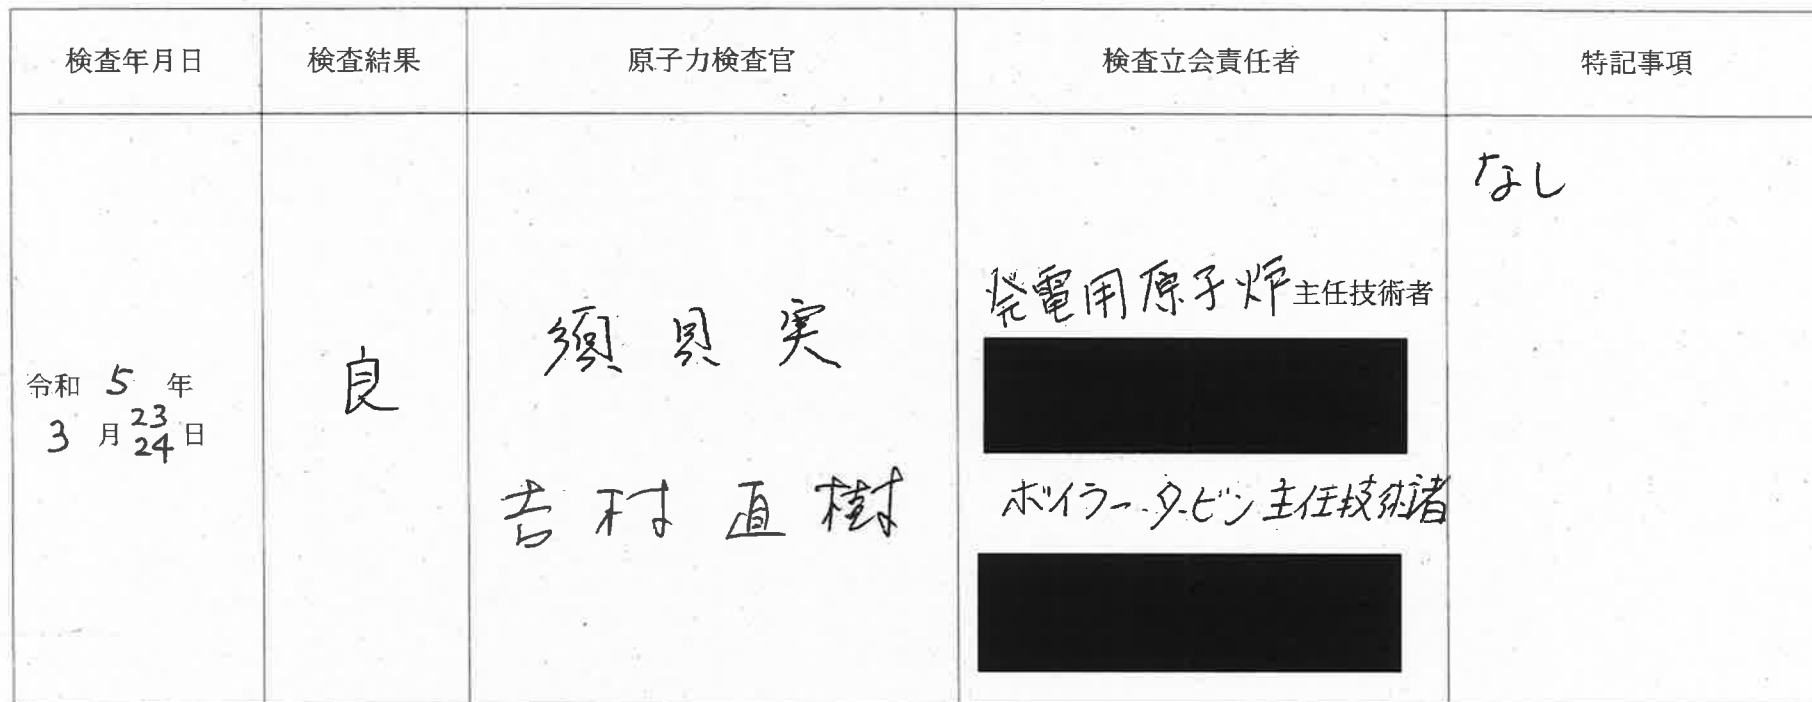 検査年月日
検査結果
原子力検査官
検査立会責任者
特記事項
令和 5 年
3 月 23 日
24
良
須貝 実
吉村 直樹
発電用原子炉主任技術者
ボイラー・タービン主任技術者
なし